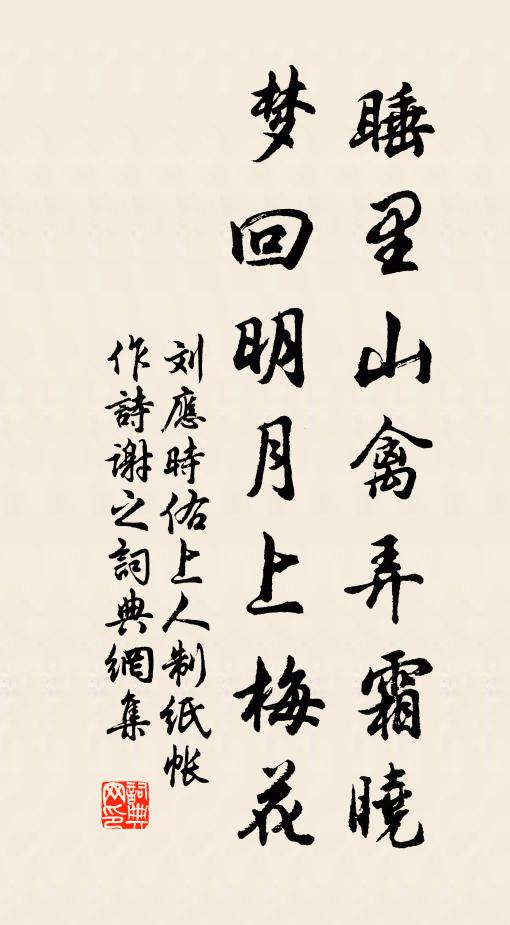 睡里山禽弄霜曉
梦回明月上梅花
刘應時佑上人制纸帐
作詩謝之詞典網集
詞典网印